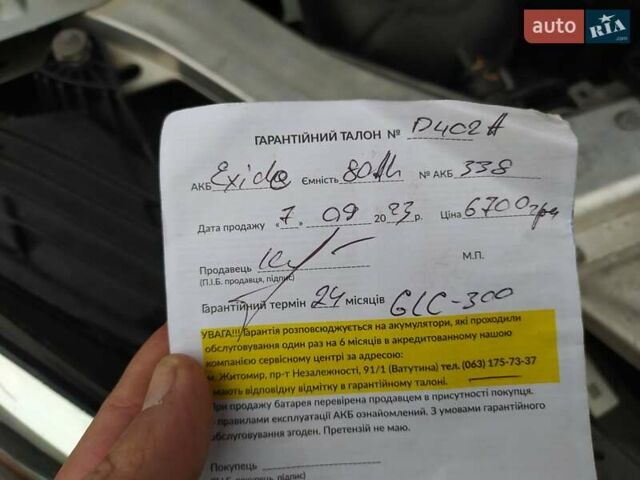 auto RIA .com
ГАРАНТІЙНИЙ ТАЛОН № D402A
АКБ Exide Ємність 80Ah № АКБ 338
Дата продажу «7» 09 2023р. Ціна 6700грн
Продавець
(П.І.Б. продавця, підпис)
М.П.
Гарантійний термін 24 місяців GLC-300
УВАГА!!! Гарантія розповсюджується на акумулятори, які проходили
обслуговування один раз на 6 місяців в акредитованному нашою
компанією сервісному центрі за адресою:
м. Житомир, пр-т Незалежності, 91/1 (Ватутина) тел. (063) 175-73-37
і мають відповідну відмітку в гарантійному талоні.
При продажу батарея перевірена продавцем в присутності покупця.
правилами експлуатації АКБ ознайомлений. З умовами гарантійного
обслуговування згоден. Претензій не маю.
Покупець
(П.І.Б. покупця, підпис)